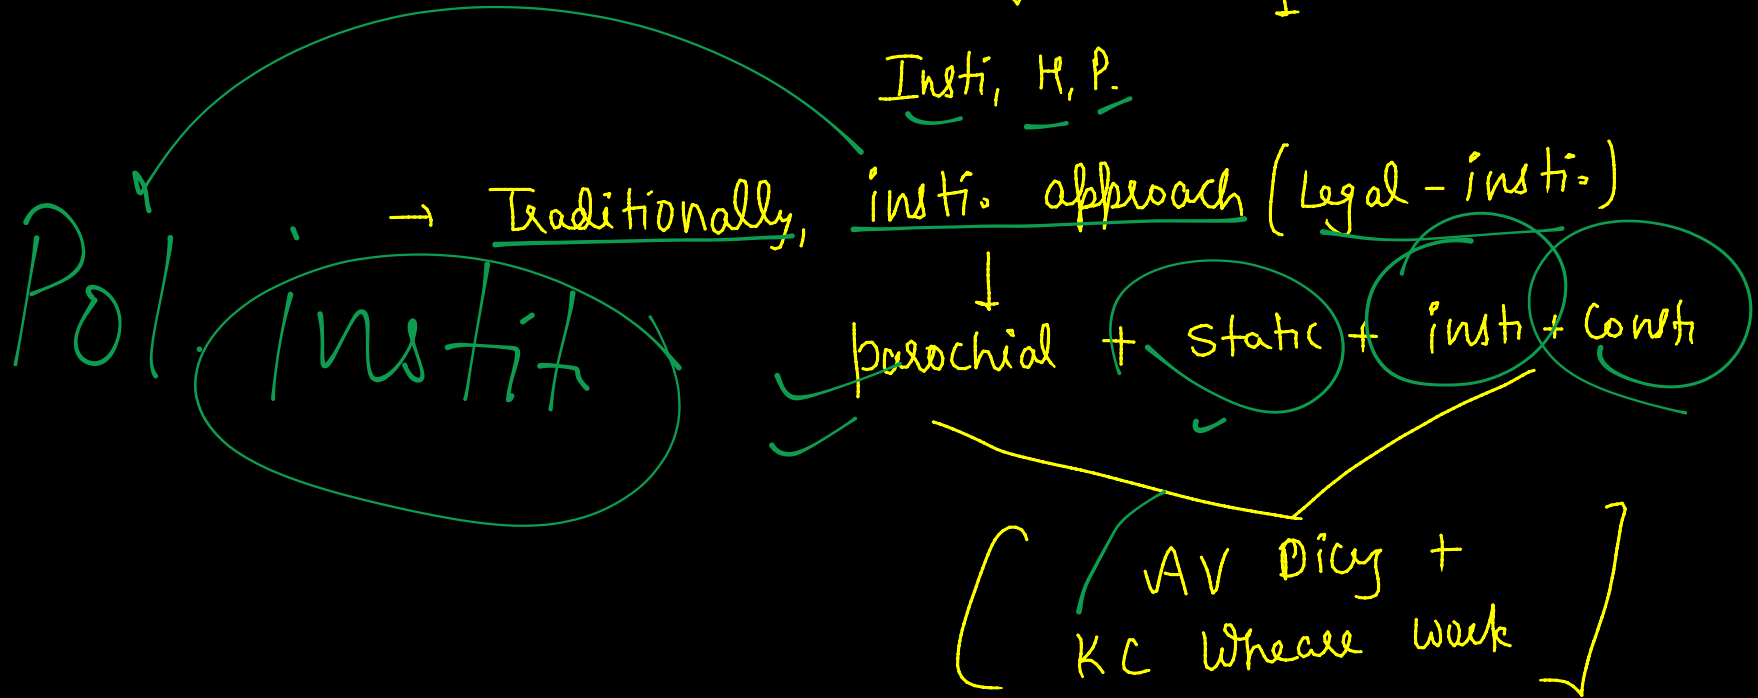 Insti, H, P.
→ Traditionally, insti. approach (Legal - insti.)
Pol. Instit
parochial + static + insti + consti
AV Dicy +
KC Wheare work